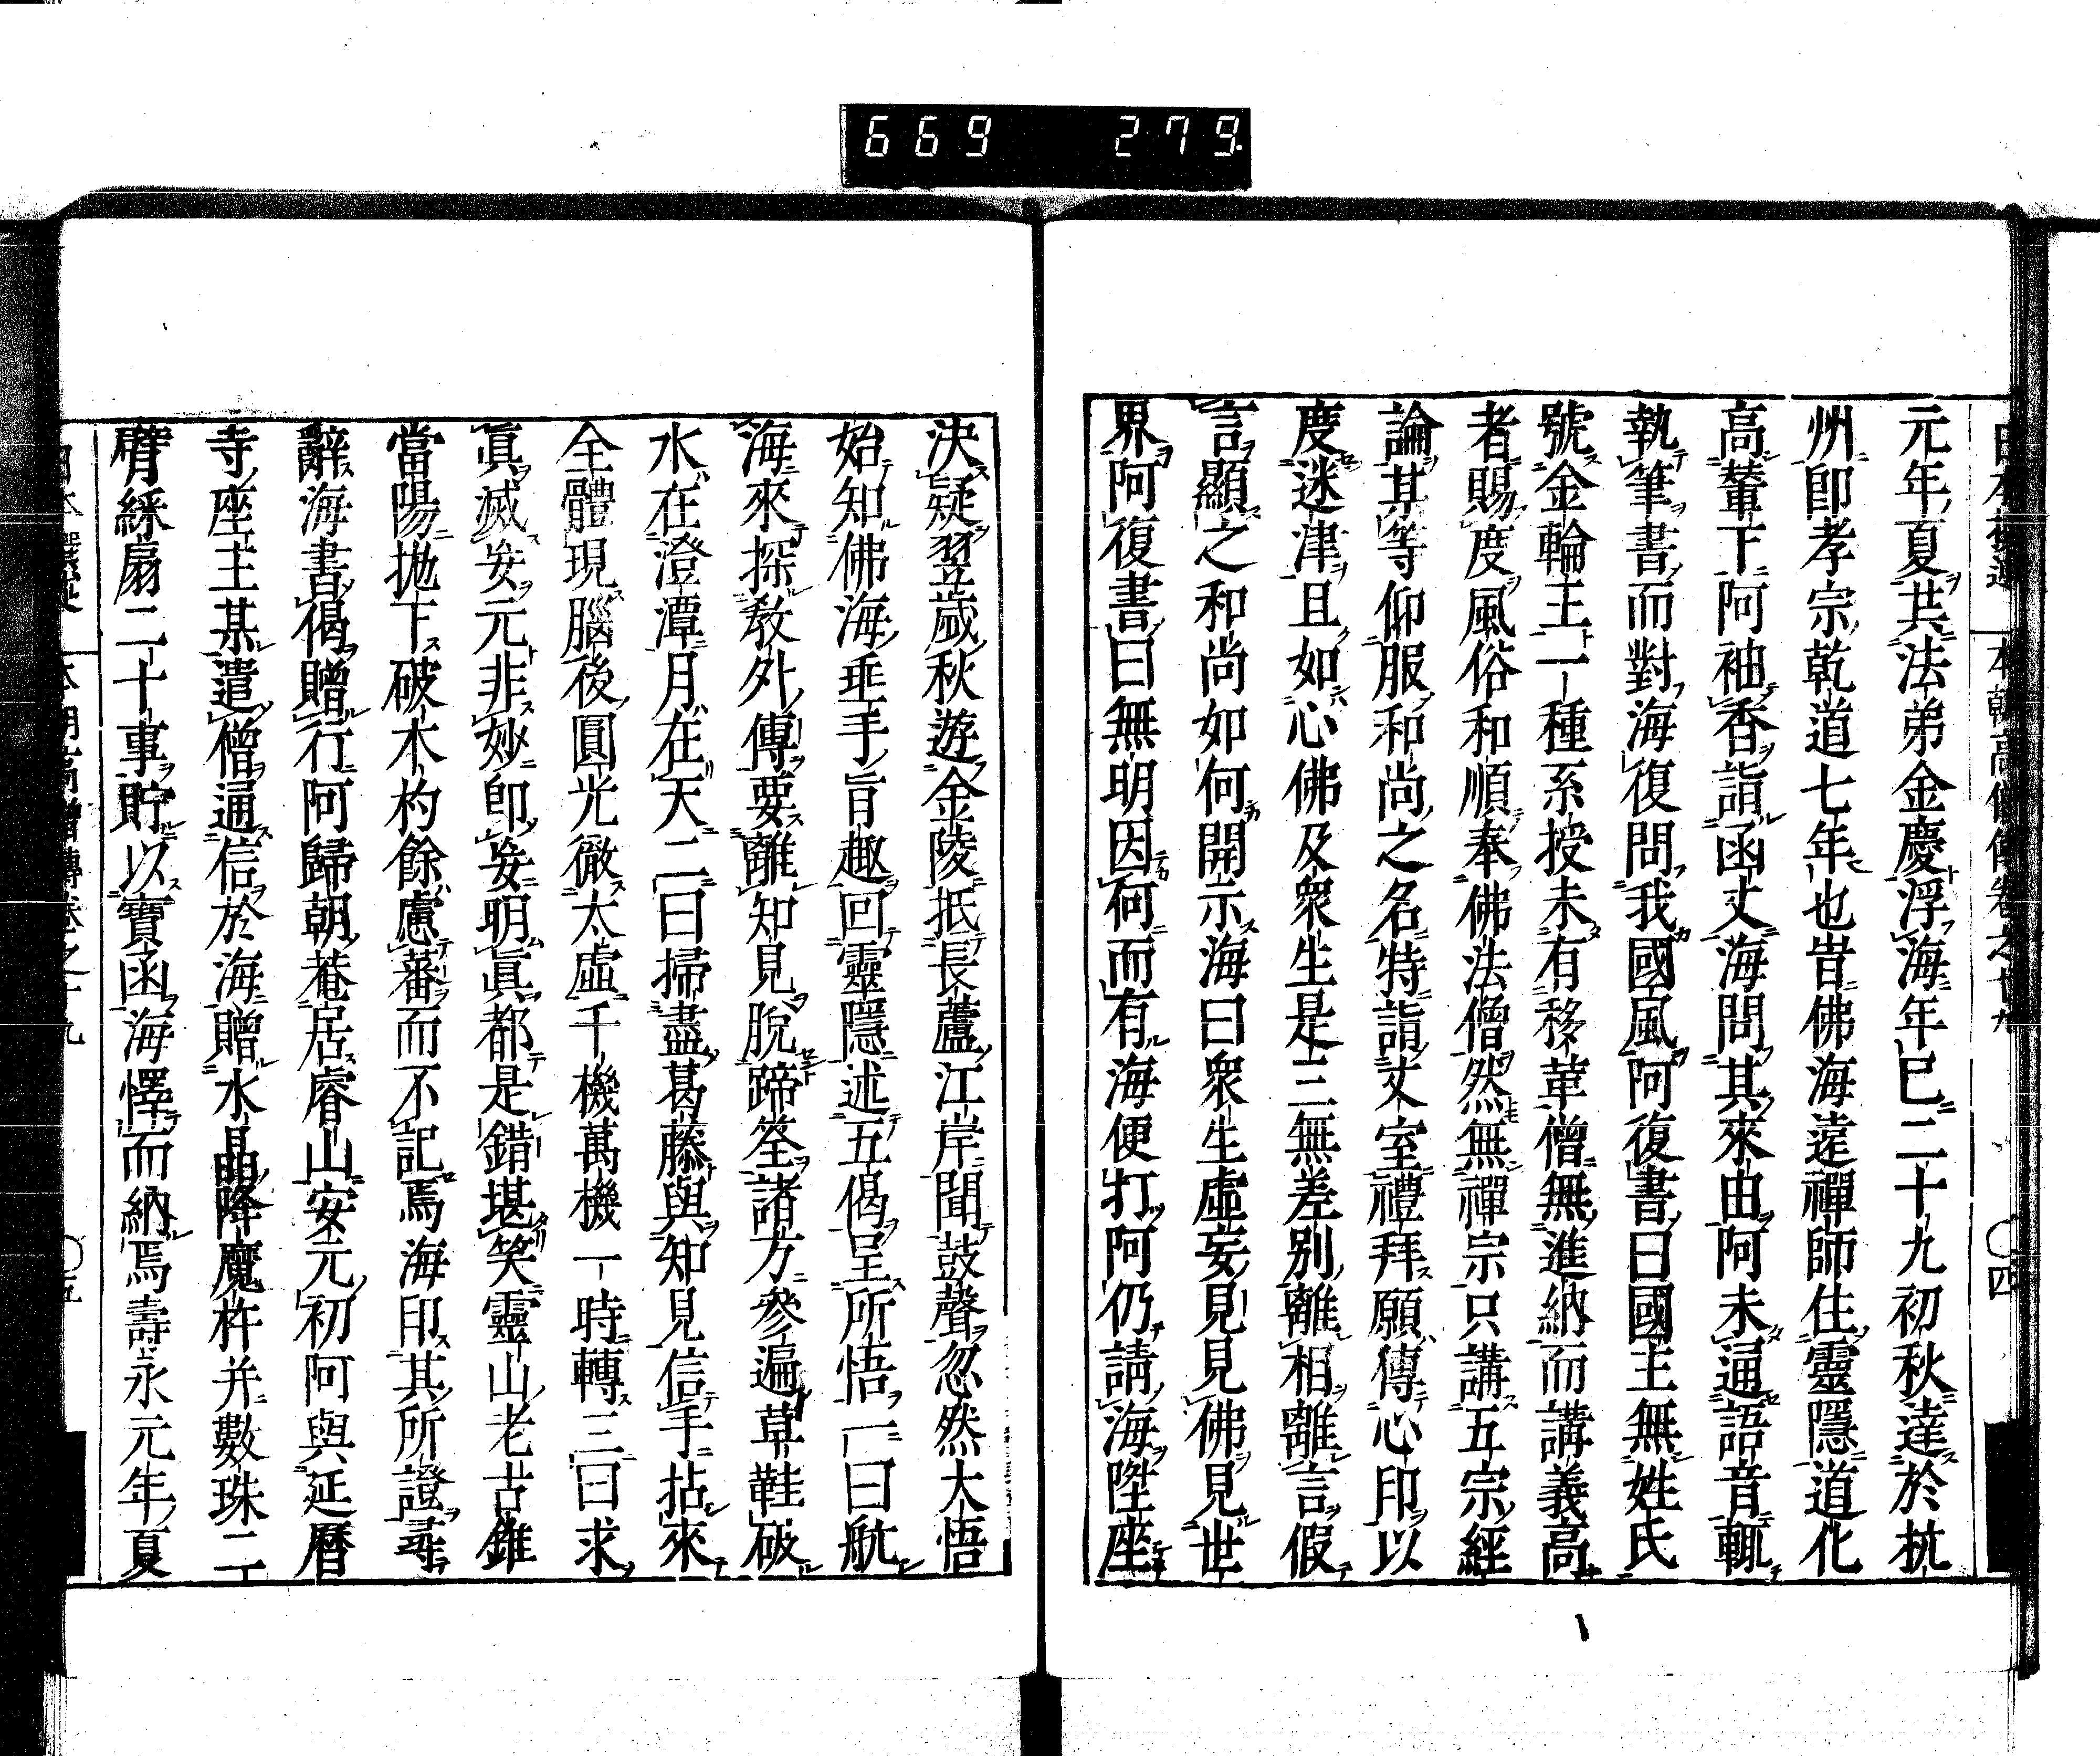 669 279
本朝高僧傳卷之十九 〇四
元年夏共法弟金慶浮海年已二十九初秋達於杭
州卽孝宗乾道七年也昔佛海遠禪師住靈隱道化
高輦下阿袖香詣函丈海問其來由阿未通語音輒
執筆書而對海復問我國風阿復書曰國主無姓氏
號金輪王一種系授未有移革僧無進納而講義高
者賜度風俗和順奉佛法僧然無禪宗只講五宗經
論某等仰服和尚之名特詣丈室禮拜願傳心印以
度迷津且如心佛及衆生是三無差別離相離言假
言顯之和尚如何開示海曰衆生虛妄見見佛見世
界阿復書曰無明因何而有海便打阿仍請海陞座
決疑翌歲秋遊金陵抵長蘆江岸聞鼓聲忽然大悟
始知佛海垂手旨趣回靈隱述五偈呈所悟一曰航
海來探敎外傳要離知見脫蹄筌諸方參遍草鞋破
水在澄潭月在天二曰掃盡葛藤與知見信手拈來
全體現腦後圓光徹太虛千機萬機一時轉三曰求
眞滅妄元非妙卽妄明眞都是錯堪笑靈山老古錐
當陽拋下破木杓餘慮蕃而不記焉海印其所證尋
辭海書偈贈行阿歸朝菴居睿山安元初阿與延曆
寺座主某遣僧通信於海贈水晶降魔杵并數珠二
臂綵扇二十事貯以寶函海懌而納焉壽永元年夏
本朝高僧傳卷之十九 〇五